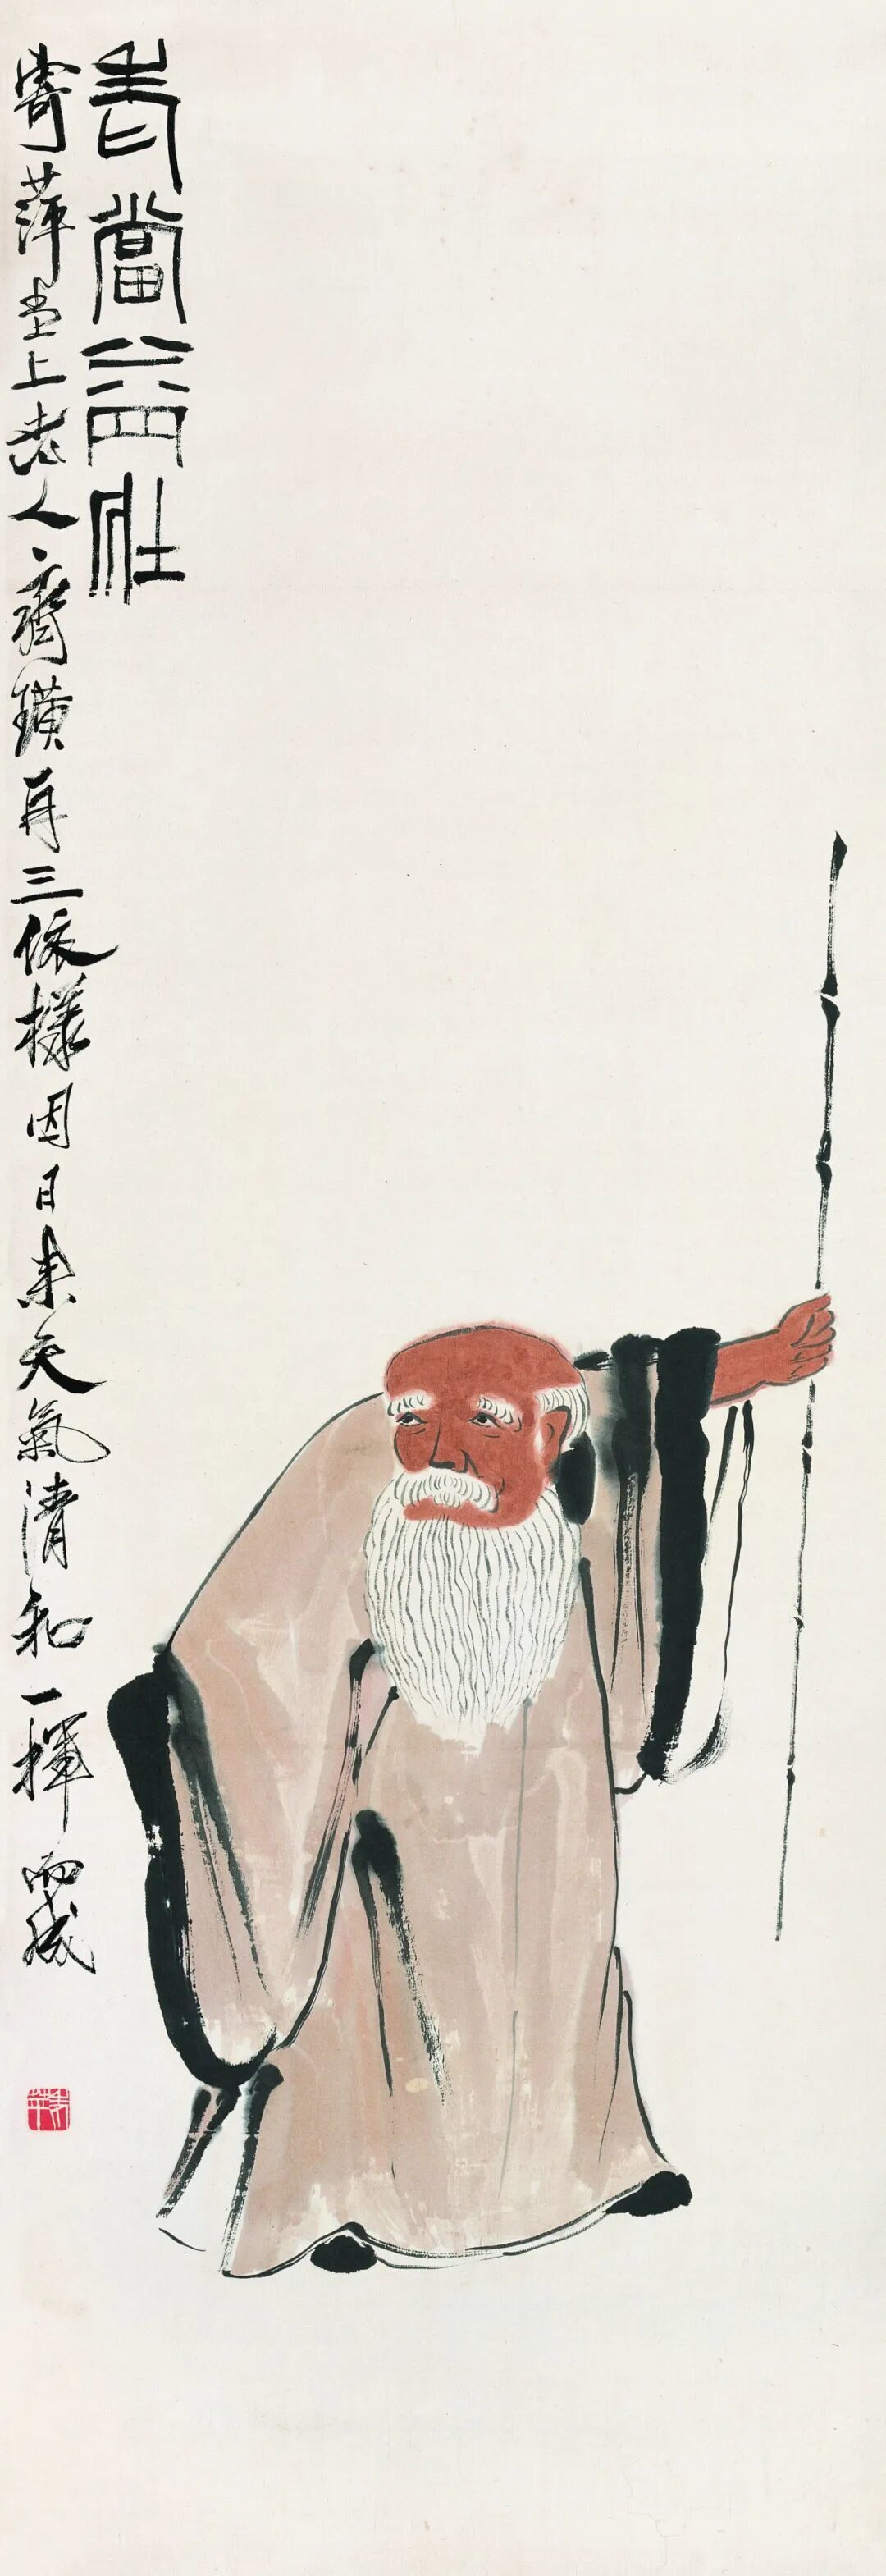 老當益壯
寄萍堂上老人齊璜再三依樣因日來天氣清和一揮而成